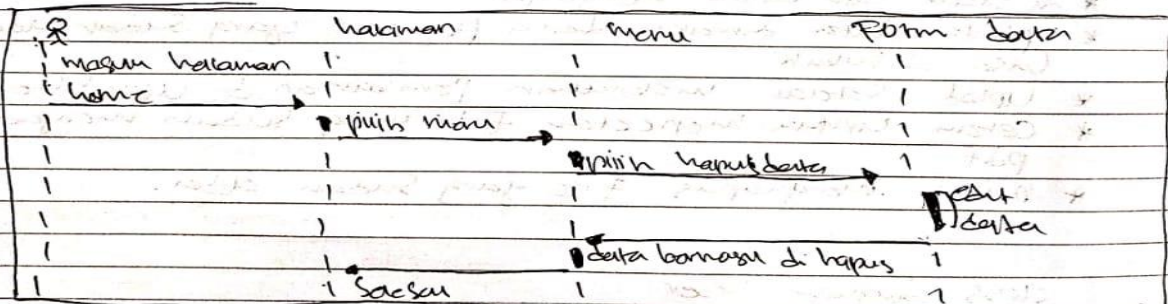 halaman menu Form data
masuk halaman
home
pilih menu
pilih hapus data
edit
data
data berhasil di hapus
Selesai